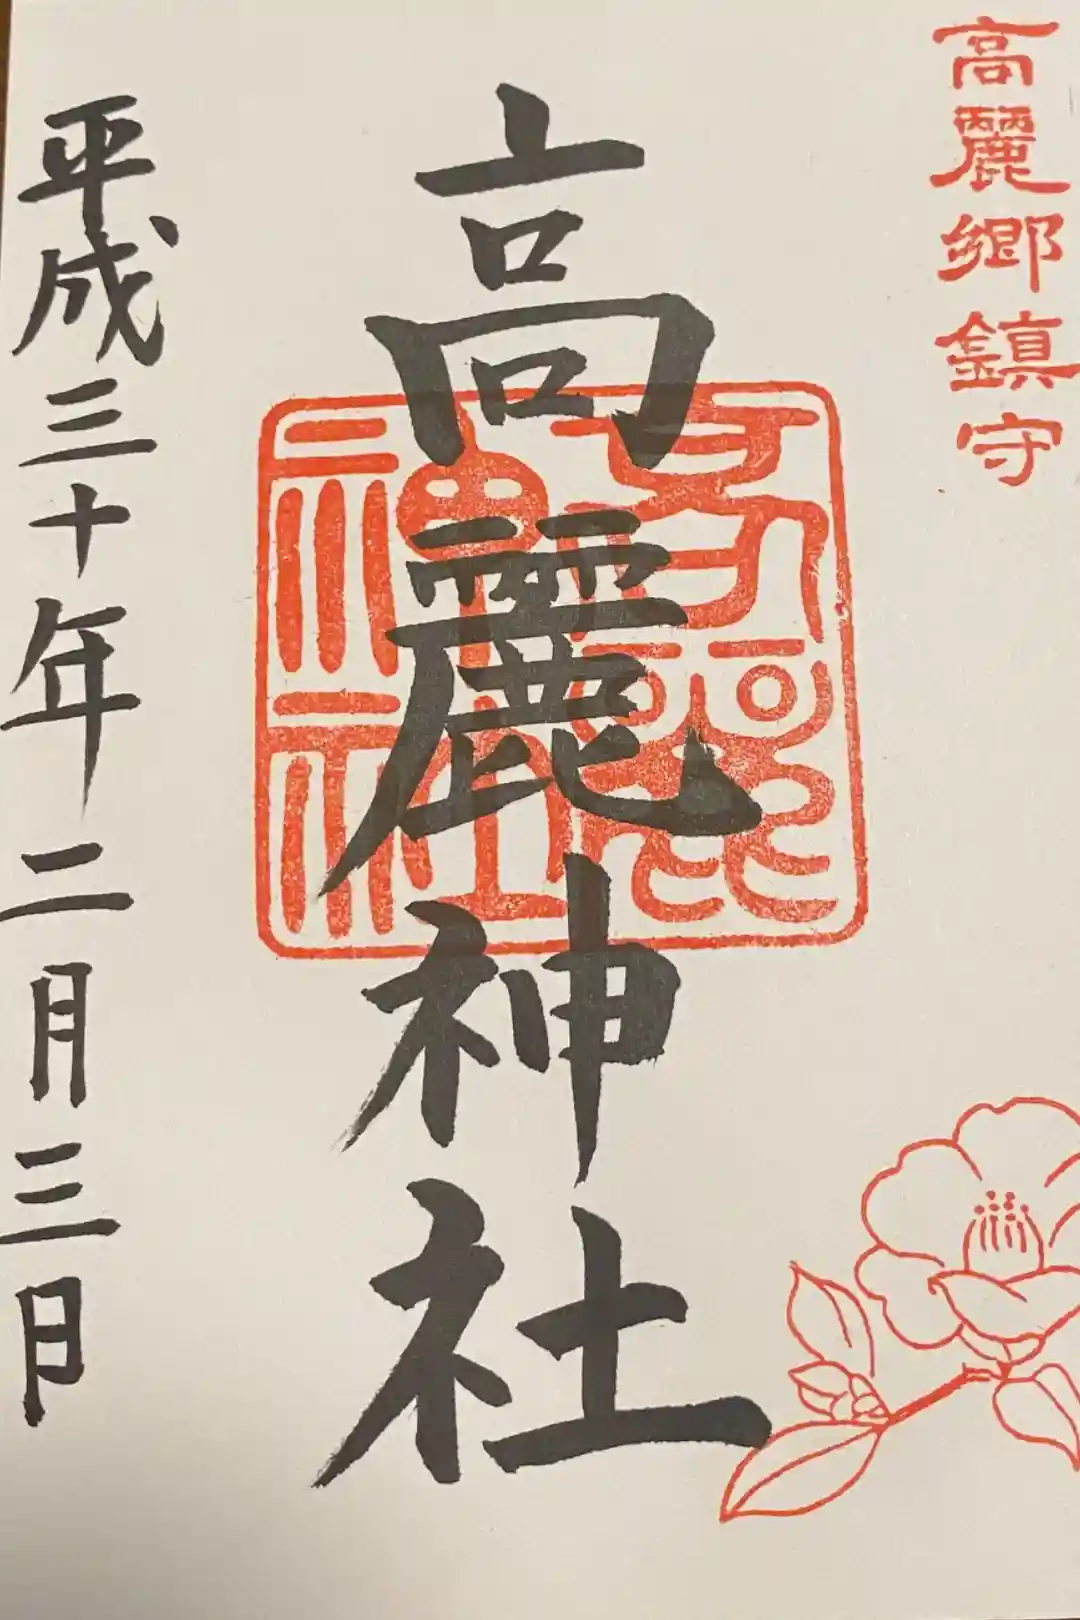 高麗郷鎮守
高麗神社
高麗
神社
平成三十年二月三日